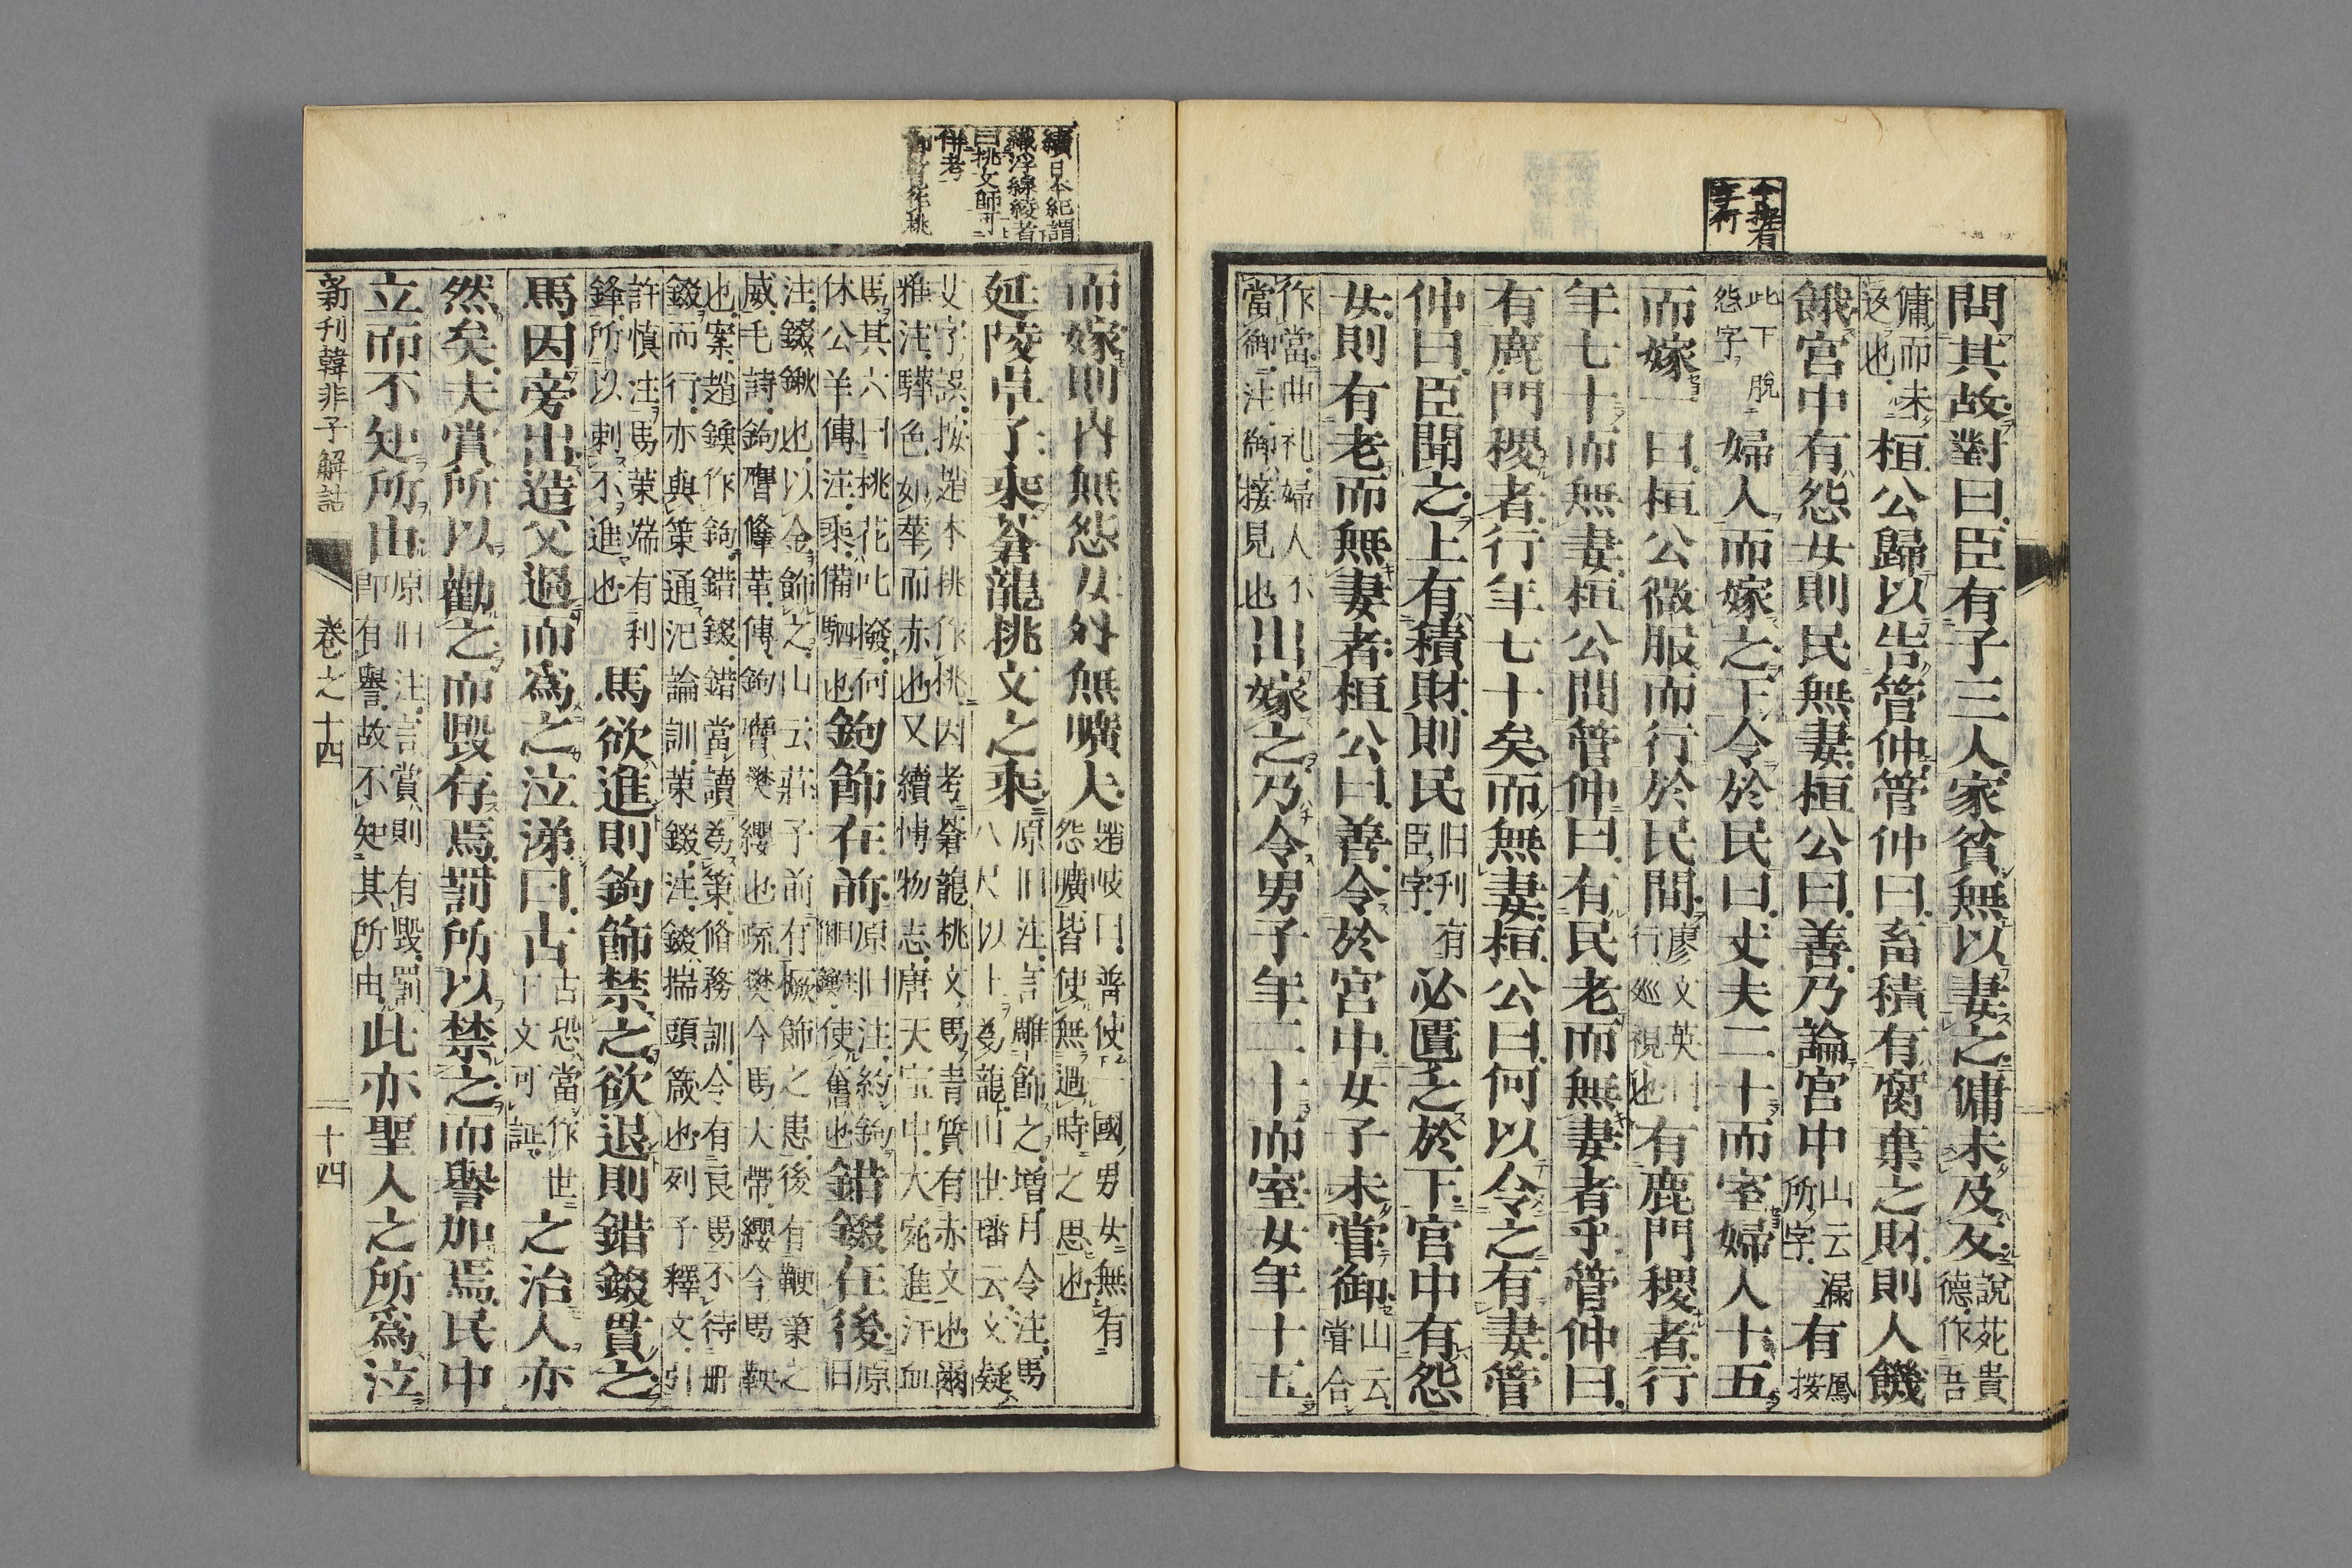 問其故對曰臣有子三人家貧無以妻之傭未及反 說苑貴德作吾
傭而未返也 桓公歸以告管仲管仲曰畜積有腐棄之財則人饑
餓宮中有怨女則民無妻桓公曰善乃論宮中 山云漏所字 有 鳳按
此下脫怨字 婦人而嫁之下令於民曰丈夫二十而室婦人十五
而嫁一曰桓公微服而行於民間 廖文英曰行巡視也 有鹿門稷者行
年七十而無妻桓公問管仲曰有民老而無妻者乎管仲曰
有鹿門稷者行年七十矣而無妻桓公曰何以令之有妻管
仲曰臣聞之上有積財則民 旧刊有臣字 必匱乏於下宮中有怨
女則有老而無妻者桓公曰善令於宮中女子未嘗御 山云嘗合
作當曲礼婦人不當御注御接見也 出嫁之乃令男子年二十而室女年十五
而嫁則內無怨女外無曠夫 趙岐曰普使一國男女無有怨曠皆使無過時之思也
延陵卓子乘蒼龍挑文之乘 原旧注言雕飾之增月令注馬八尺以上爲龍山世璠云文疑
文字誤按趙本挑作桃因考蒼龍桃文馬青質有赤文也爾雅注驊色如華而赤也又續博物志唐天宝中大宛進汗血
馬其六曰桃花叱撥何休公羊傳注乘備駟也 鉤飾在前 原旧注約鉤使奮也 錯錣在後 原旧
注錣鍬也以金飾之山云莊子前有橛飾之患後有鞭筴之威毛詩鉤膺鞗革傳鉤膺樊纓也疏樊今馬大帶纓今馬鞅
也案趙鍥作鉤錯錣錯當讀爲策脩務訓今有良馬不待册錣而行亦與策通氾論訓筴錣注錣揣頭箴也列子釋文引
許慎注馬筴端有利鋒所以刺不進也 馬欲進則鉤飾禁之欲退則錯錣貫之
馬因旁出造父過而爲之泣涕曰古 古恐當作世下文可証 之治人亦
然矣夫賞所以勸之而毀存焉罰所以禁之而譽加焉民中
立而不知所由 原旧注言賞則有毀罰即有譽故不知其所由 此亦聖人之所爲泣
新刊韓非子解詁 卷之十四 十四
續日本紀謂
織浮線綾者
曰挑文師可
併考